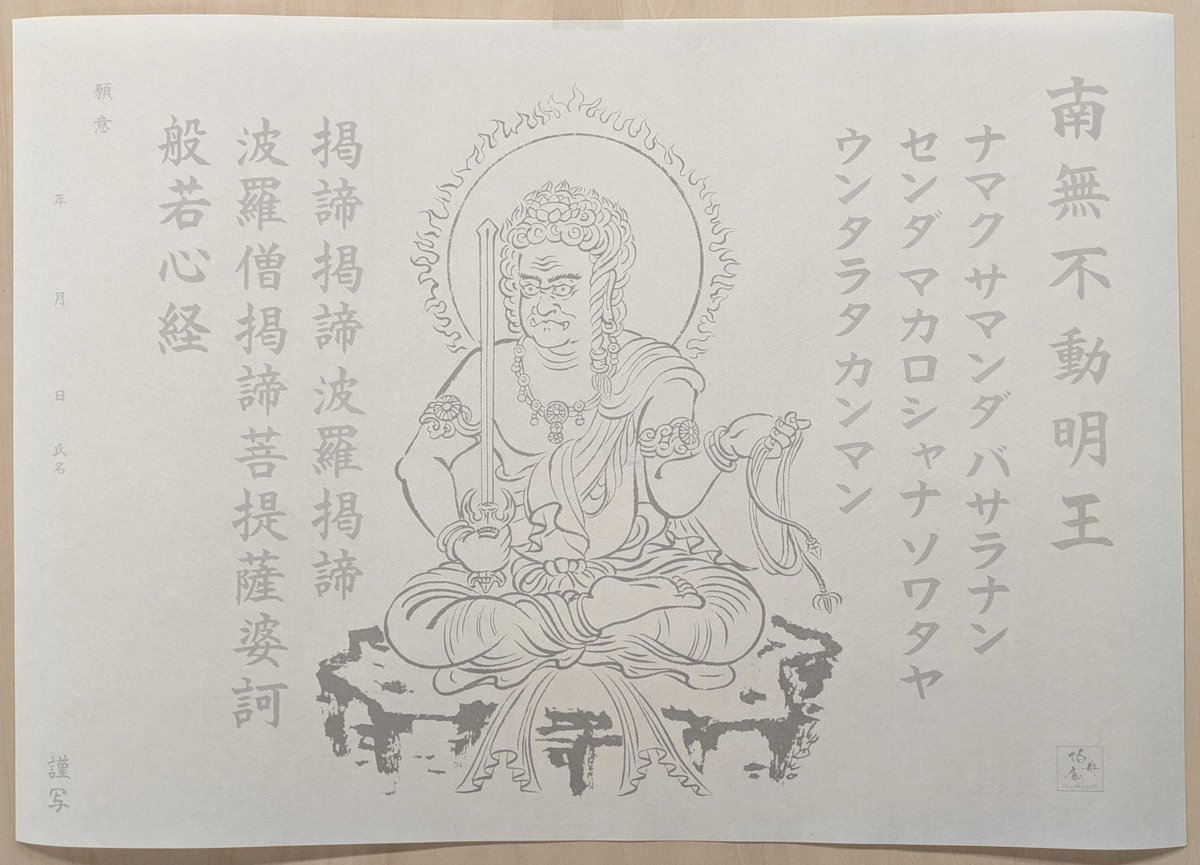 南無不動明王
ナマク サマンダ バサラナン
センダ マカロシャナ ソワタヤ
ウンタラタ カンマン
掲諦掲諦波羅掲諦
波羅僧掲諦菩提薩婆訶
般若心経
願意
年 月 日 氏名
謹写